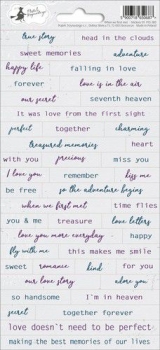 true story head in the clouds
sweet memories adventure
happy life falling in love
forever love is in the air
our secret seventh heaven
It was love from the first sight
perfect together charming
treasured memories heart
with you precious miss you
I love you remember kiss me
be free so the adventure begins
when we first met time flies
you & me treasure love letters
love you more everyday happy
fly with me this makes me smile
sweet romance kind for you
our love story adore you
so handsome I'm in heaven
secret together forever
love doesn't need to be perfect
making the best memories of our lives